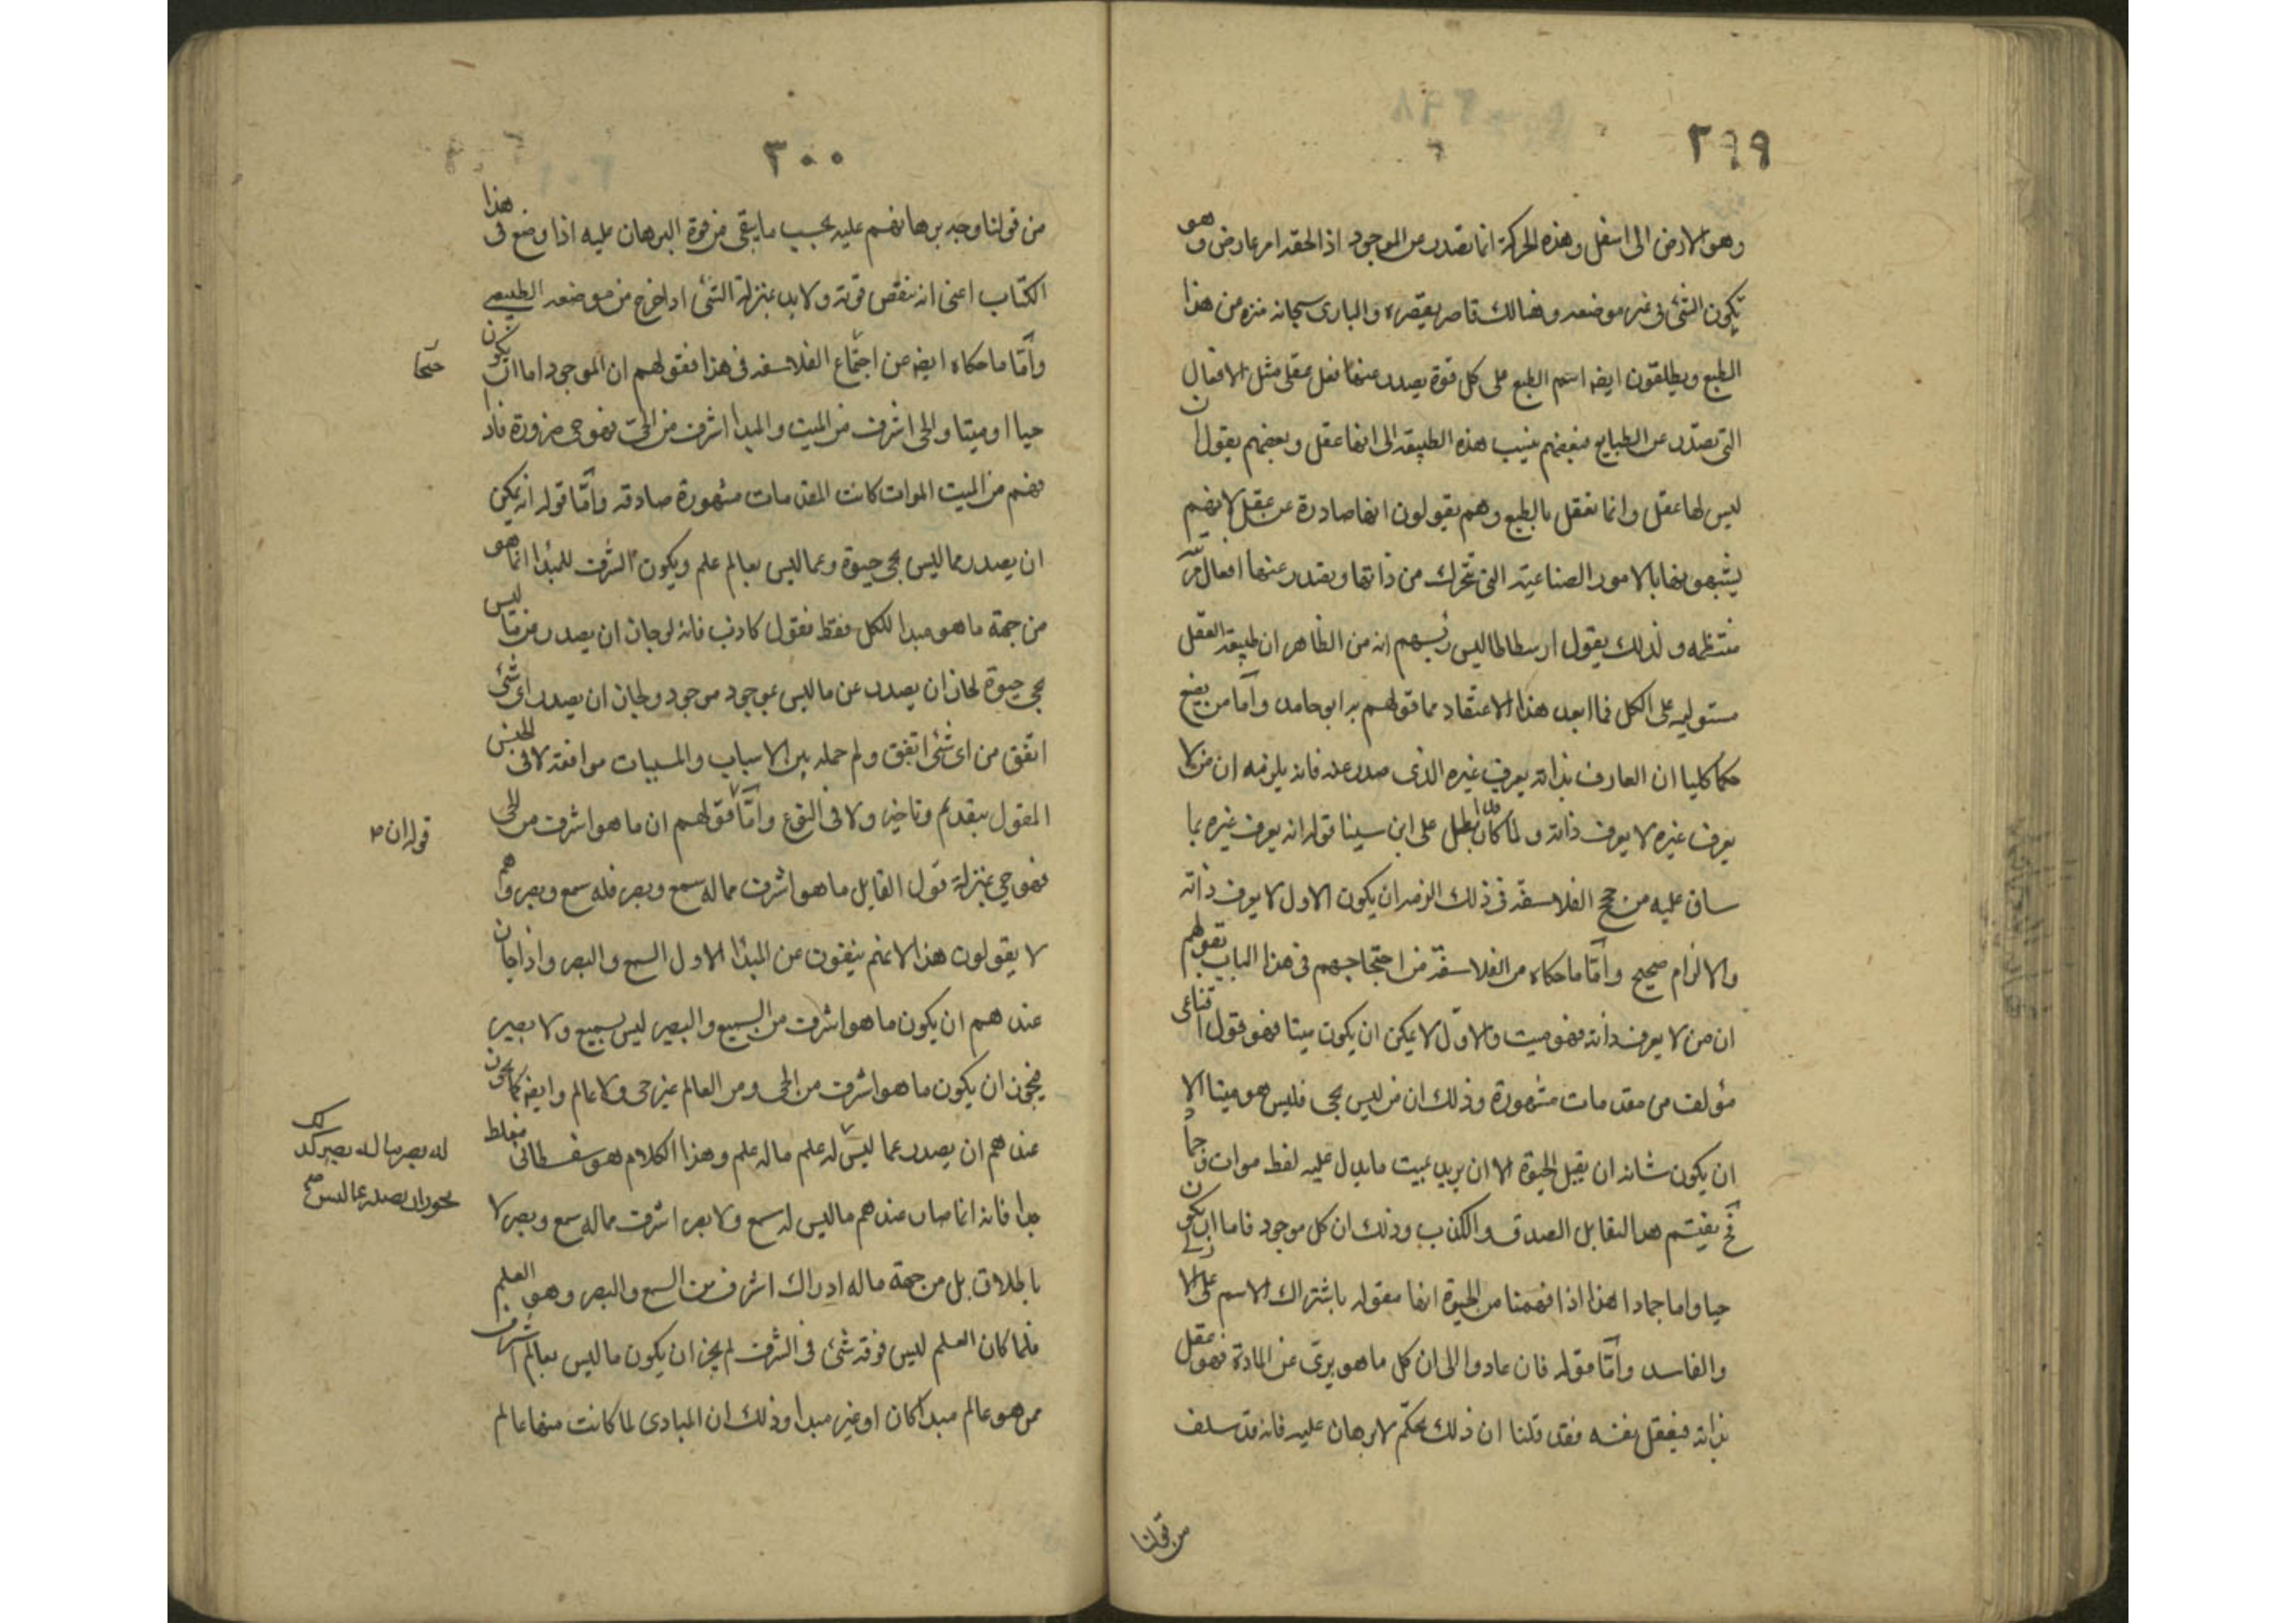 ٢٩٩
وهو الارض الى اسفل وهذه الحركة انما تصدر عن الموجود اذا لحقه امر عارض وهو
يكون الشئ فى غير موضعه وهنالك قاصر يقصره والبارى سبحانه منزه من هذا
الطبع ويطلقون ايضه اسم الطبع على كل قوة يصدر عنها فعل عقلى مثل الافعال
التى تصدر عن الطبايع فبعضهم ينسب هذه الطبيعه الى انها عقل وبعضهم يقول ان
ليس لها عقل وانما تفعل بالطبع وهم يقولون انها صادرة عن عقل لانهم
يشبهونها بالامور الصناعية التى تتحرك من ذاتها ويصدر عنها افعال مرتبه
منتظمه ولذلك يقول ارسطاطاليس رئيسهم انه من الظاهر ان طبيعة العقل
مستوليه على الكل فما ابعد هذا الاعتقاد مما قولهم به ابو حامد واما من يضع
حكما كليا ان العارف بذاته يعرف غيره الذى صدر عنه فانه يلزمه ان من لا
يعرف غيره لا يعرف ذاته ولما كان ابطل على ابن سينا قوله انه يعرف غيره بما
ساق عليه من حجج الفلاسفة فى ذلك الزمه ان يكون الاول لا يعرف ذاته
والالزام صحيح وامّا ما حكاه من الفلاسفة من احتجاجهم فى هذا الباب بقولهم
ان من لا يعرف ذاته فهو ميت والاوّل لا يمكن ان يكون ميتا فهو قول اقناعى
مؤلف من مقدمات مشهورة وذلك ان من ليس بحى فليس هو ميتا الا
ان يكون شانه ان يقبل الحيوة الا ان يريد بميت ما يدل عليه لفظ موات وجماد
فح يقتسم هذا التقابل الصدق والكذب وذلك ان كل موجود فاما ان يكون
حيا واما جمادا هذا اذا فهمنا من الحيوة انها مقوله باشتراك الاسم على الازلى
والفاسد وامّا قوله فان عادوا الى ان كل ما هو برى عن المادة فهو عقل
بذاته فيعقل نفسه فقد قلنا ان ذلك تحكّم لا برهان عليه فانه قد سلف
من قولنا
٣٠٠
من قولنا وجه برهانهم عليه بحسب ما يبقى من قوة البرهان عليه اذا وضع فى هذا
الكتاب اعنى انه تنقص قوته ولا بد بمنزلة الشئ اذا خرج من موضعه الطبيعى
وامّا ما حكاه ايضه عن اجتماع الفلاسفه فى هذا فقولهم ان الموجود اما ان يكون
حيا او ميتا والحى اشرف من الميت والمبدأ اشرف من الحى فهو حى ضرورة فاذا
فهم من الميت الموات كانت المقدمات مشهورة صادقه وامّا قوله انه يمكن
ان يصدر مما ليس بحى حيوة وعما ليس بعالم علم ويكون الشرف للمبدا انما هو
من جهة ما هو مبدا للكل فقط فقول كاذب فانه لو جاز ان يصدر مما ليس
بحى حيوة لجاز ان يصدر عن ما ليس بموجود موجود ولجاز ان يصدر اى شئ
اتفق من اى شئ اتفق ولم حمله بين الاسباب والمسببات موافقة لا فى الجنس
المقول بتقديم وتاخير ولا فى النوع وامّا قولهم ان ما هو اشرف من الحى
قوله ان
فهو حى بمنزلة قول القايل ما هو اشرف مما له سمع وبصر فله سمع وبصر وهم
لا يقولون هذا لانهم ينفون عن المبدا الاول السمع والبصر واذا جاز
عندهم ان يكون ما هو اشرف من السميع والبصير ليس بسميع ولا بصير
فيجوز ان يكون ما هو اشرف من الحى ومن العالم غير حى ولا عالم وايضه كما يجوز
عندهم ان يصدر عما ليس له علم ما له علم وهذا الكلام هو سفسطائى مغلط
له بصر ما له بصر كذلك
يجوز ان يصدر عما ليس
جدا فانه انما صار عندهم ما ليس له سمع ولا بصر اشرف مما له سمع وبصر لا
باطلاق بل من جهة ما له ادراك اشرف من السمع والبصر وهو العلم
فلما كان العلم ليس فوقه شئ فى الشرف لم يجز ان يكون ما ليس بعالم اشرف
من هو عالم مبدا كان او غير مبدا وذلك ان المبادى لما كانت منها عالم